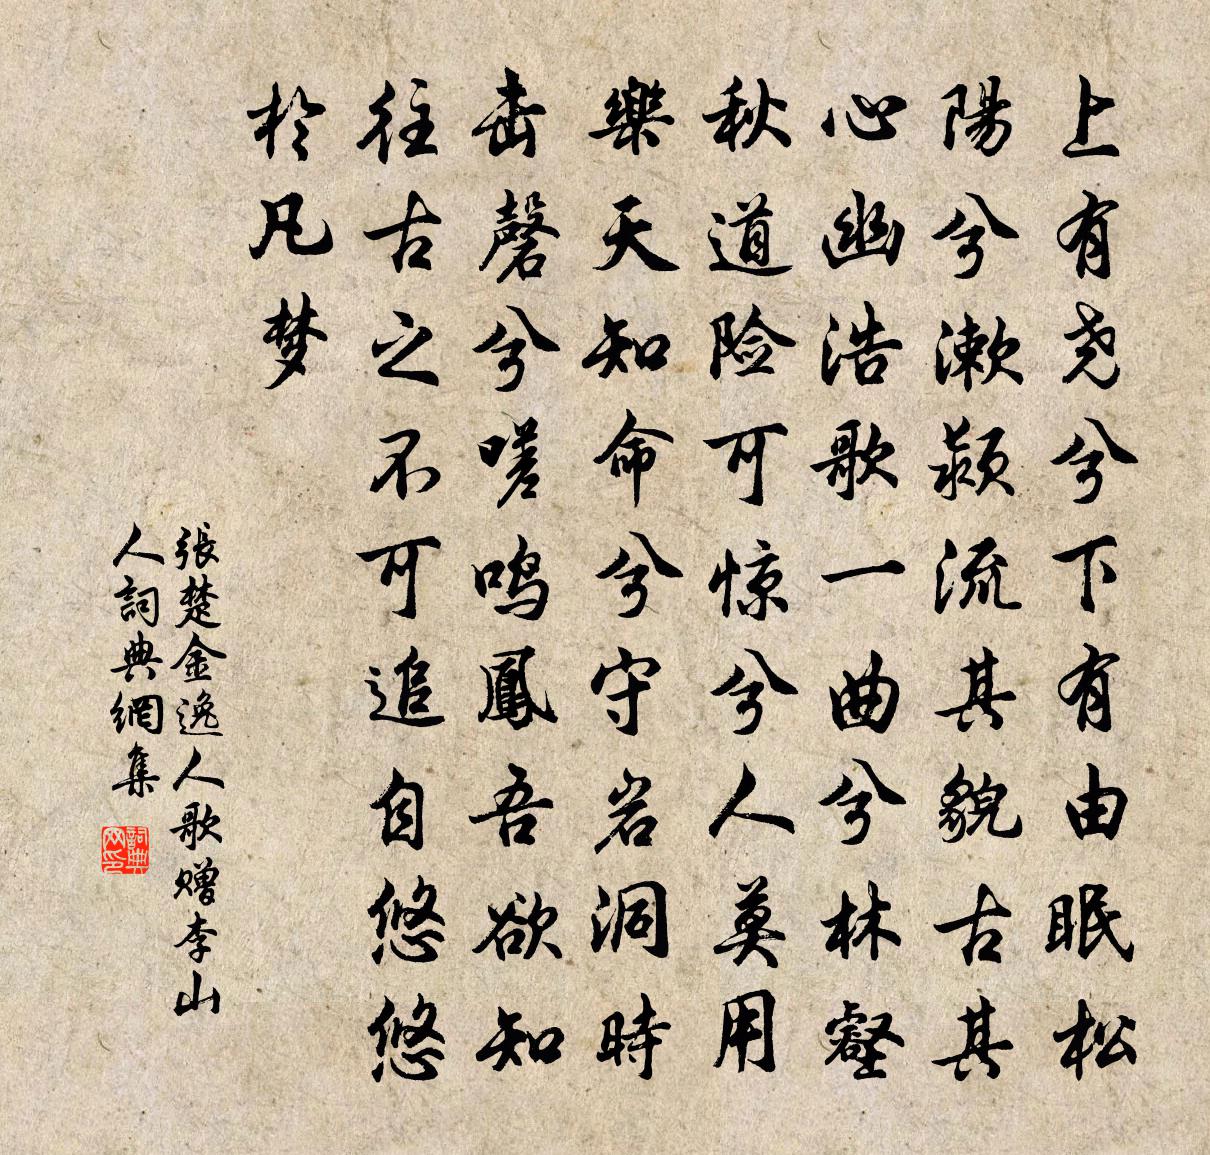 上有尧兮下有由眠松
陽兮漱颍流其貌古其
心幽浩歌一曲兮林壑
秋道险可惊兮人莫用
樂天知命兮守岩洞時
击磬兮嗟鸣鳳吾欲知
往古之不可追自悠悠
於凡梦
張楚金逸人歌赠李山
人詞典網集
詞典
网印